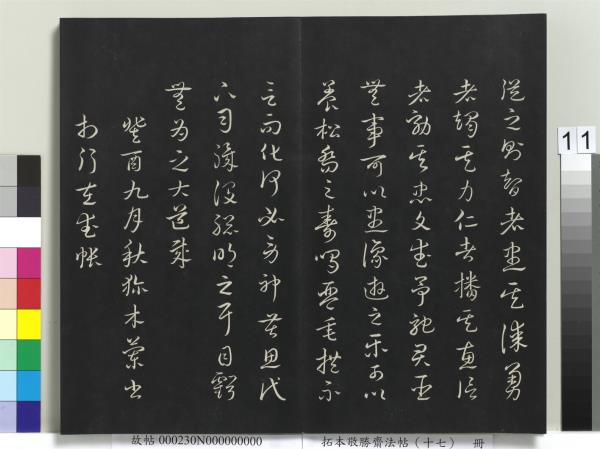 從之則智者盡其謀勇
者竭其力仁者播其惠信
者効其忠文武爭馳君臣
無事可以盡豫遊之樂可以
養松喬之壽鳴琴垂拱不
言而化何必勞神苦思代
下司職役聰明之耳目虧
無為之大道哉
癸酉九月秋獮木蘭書
於行在武帳
11
故帖000230N000000000
拓本敬勝齋法帖(十七) 冊